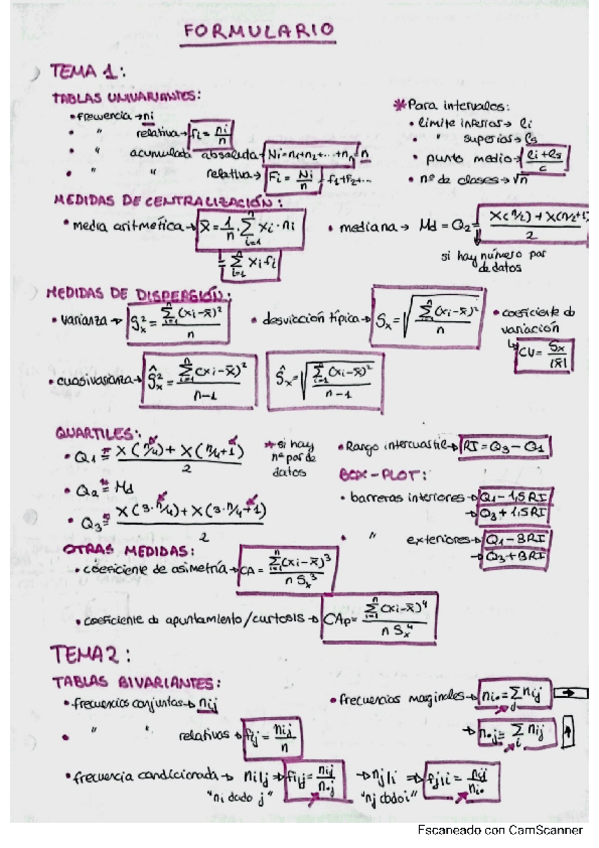 FORMULARIO
TEMA 1:
TABLAS UNIVARIANTES:
• frecuencia → ni
• " relativa → fi = ni/n
• " acumulada absoluta → Ni = n1+n2+...+ni = n
• " " relativa → Fi = Ni/n = f1+f2+...
* Para intervalos:
• límite inferior → li
• " superior → ls
• punto medio → li+ls/c
• nº de clases → √n
MEDIDAS DE CENTRALIZACIÓN:
• media aritmética → x̄ = 1/n · Σ(i=1, n) xi · ni
= Σ(i=1, n) xi fi
• mediana → Md = Q2 = X(n/2) + X(n/2+1) / 2
si hay número par de datos
MEDIDAS DE DISPERSIÓN:
• varianza → S²x = Σ(i=1, n) (xi-x̄)² / n
• desviación típica → Sx = √(Σ(i=1, n) (xi-x̄)² / n)
• coeficiente de variación
↳ CV = Sx/|x̄|
• cuasivarianza → Ŝ²x = Σ(i=1, n) (xi-x̄)² / n-1
Ŝx = √(Σ(i=1, n) (xi-x̄)² / n-1)
QUARTILES:
• Q1 = X(n/4) + X(n/4+1) / 2
• Q2 = Md
• Q3 = X(3·n/4) + X(3·n/4+1) / 2
* si hay nº par de datos
• Rango intercuartil → RI = Q3 - Q1
BOX-PLOT:
• barreras interiores → Q1 - 1,5RI
→ Q3 + 1,5RI
• " exteriores → Q1 - 3RI
→ Q3 + 3RI
OTRAS MEDIDAS:
• coeficiente de asimetría → CA = Σ(i=1, n) (xi-x̄)³ / n Sx³
• coeficiente de apuntamiento/curtosis → CAp = Σ(i=1, n) (xi-x̄)⁴ / n Sx⁴
TEMA 2:
TABLAS BIVARIANTES:
• frecuencias conjuntas → nij
• " " relativas → fij = nij/n
• frecuencias marginales → ni• = Σj nij →
→ n•j = Σi nij ↑
• frecuencia condicionada → ni|j ⇒ fi|j = nij/n•j → nj|i ⇒ fj|i = nij/ni•
"ni dado j" "nj dado i"
Escaneado con CamScanner